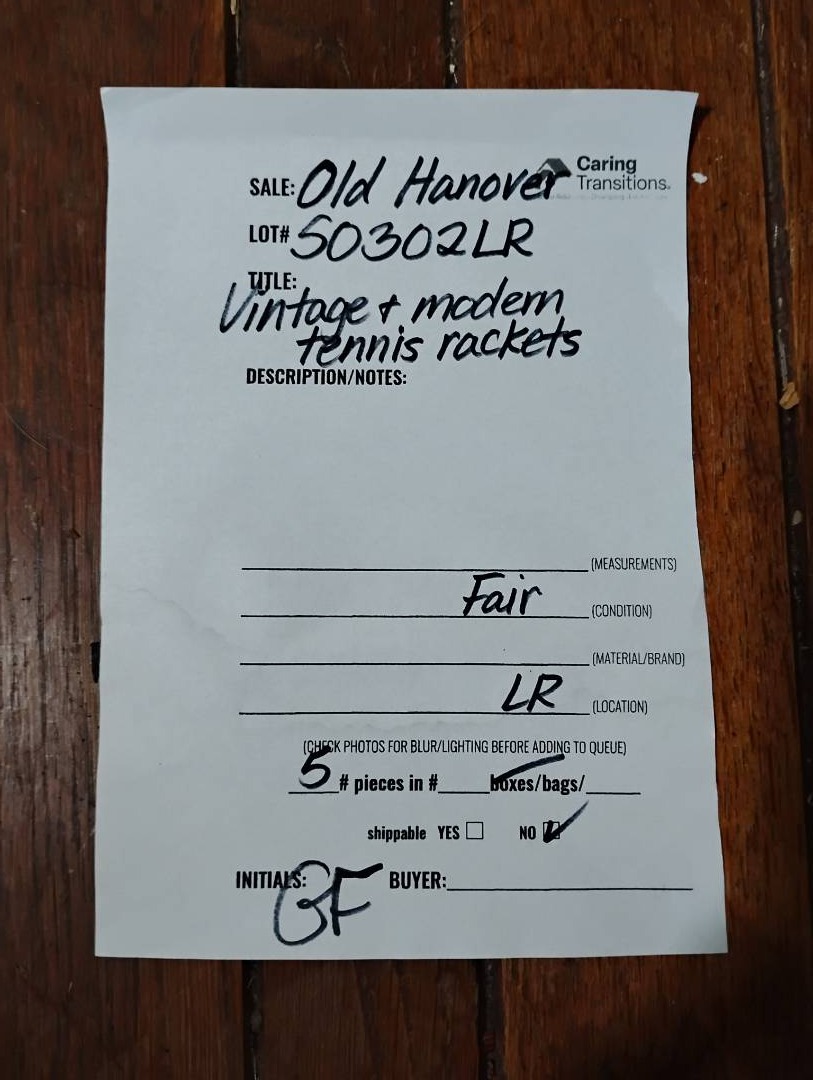 Caring
Transitions.
SALE: Old Hanover
LOT# 50302LR
TITLE:
Vintage + modern
tennis rackets
DESCRIPTION/NOTES:
(MEASUREMENTS)
Fair (CONDITION)
(MATERIAL/BRAND)
LR (LOCATION)
(CHECK PHOTOS FOR BLUR/LIGHTING BEFORE ADDING TO QUEUE)
5 # pieces in # boxes/bags/
shippable YES ☐ NO ☑
INITIALS: GF BUYER: